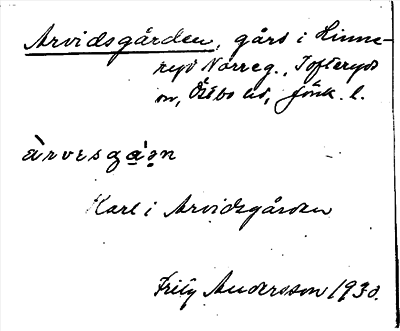 Arvidsgården, gård i Hinne-
ryd Norreg., Tofteryds
sn, Östbo hd, Jönk. l.
Karl i Arvidsgården
Fritz Andersson 1930.